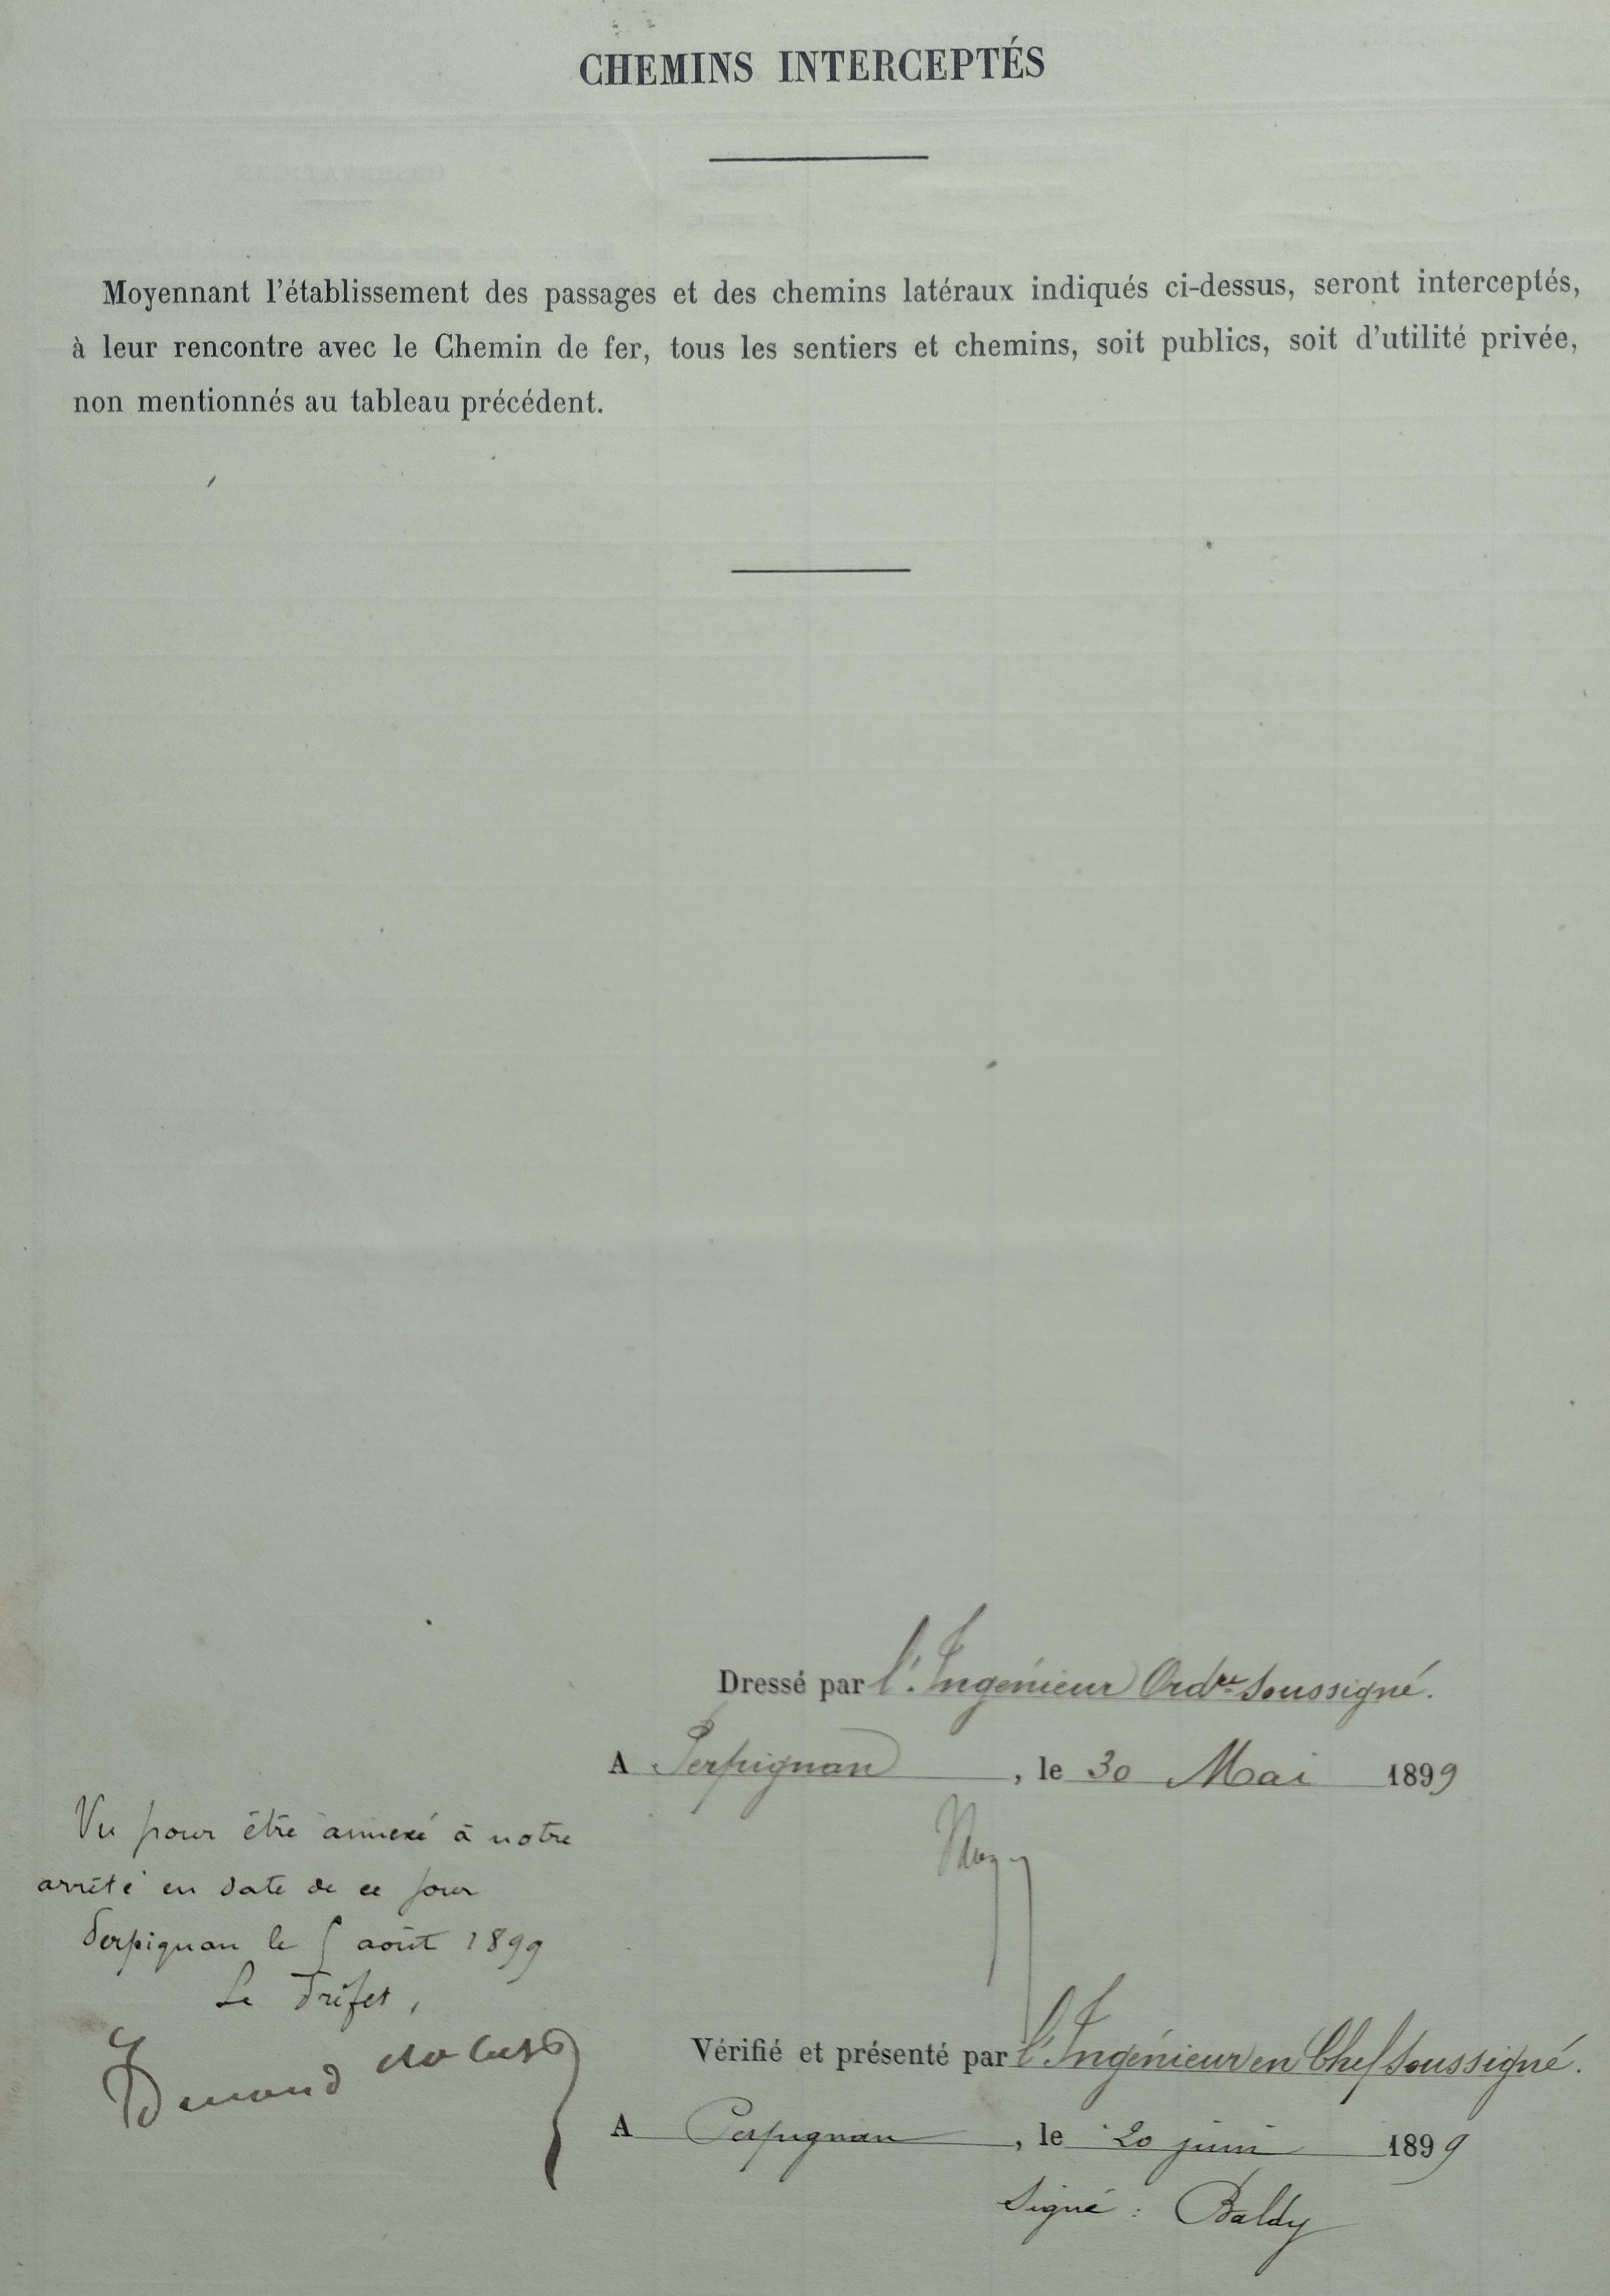 CHEMINS INTERCEPTÉS
Moyennant l'établissement des passages et des chemins latéraux indiqués ci-dessus, seront interceptés,
à leur rencontre avec le Chemin de fer, tous les sentiers et chemins, soit publics, soit d'utilité privée,
non mentionnés au tableau précédent.
Dressé par l'Ingénieur Ordre soussigné.
A Perpignan, le 30 Mai 1899
Vu pour être annexé à notre
arrêté en date de ce jour
Perpignan le août 1899
Le Préfet,
Vérifié et présenté par l'Ingénieur en Chef soussigné.
A Perpignan, le 20 juin 1899
Signé : Baldy